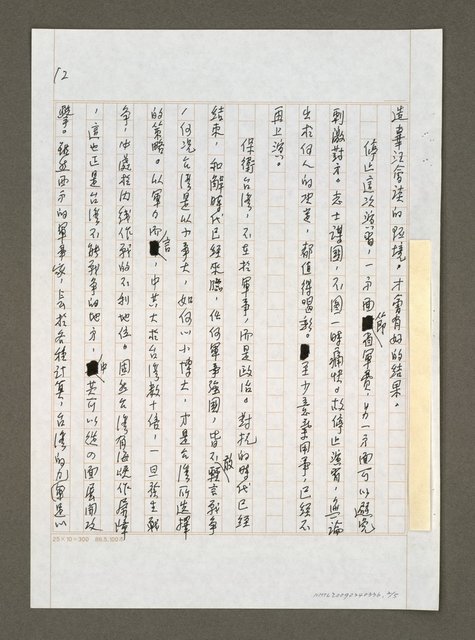 造華注會談的環境。才會有好的結果。
停止這次演習,一方面節省軍費,另一方面可以避免
刺激對方。志士謀國,不圖一時痛快。故停止演習,無論
出於何人的決意,都值得喝彩。至少意氣用事,已經不
再上演。
保衛台灣,不在於軍事,而是政治。對抗的時代已經
結束,和解時代已經來臨,任何軍事強國,皆不敢輕言戰爭
,何況台灣是以小事大,如何以小博大,才是台灣所選擇
的策略。以軍力而言,中共大於台灣數十倍,一旦發生戰
爭,中處於內綫作戰的不利地位。固然台灣有海峽作屏障
,這也正是台灣不能戰爭的地方,中共可以從四面展開攻
擊。雖然西方的軍事家,長於各種計算,台灣的力軍足以
12
25×10=300 88.5.100本
NMTL20090240336, 2/5